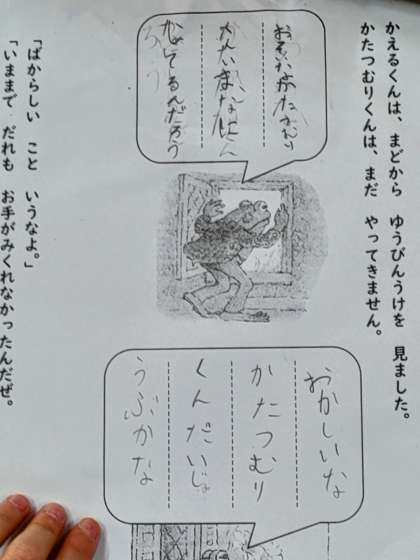 かえるくんは、まどから ゆうびんうけを 見ました。
かたつむりくんは、まだ やってきません。
してるんだろう
おかしいな
かたつむり
くんだいじょ
うぶかな
「ばからしい こと いうなよ。」
「いままで だれも お手がみくれなかったんだぜ。